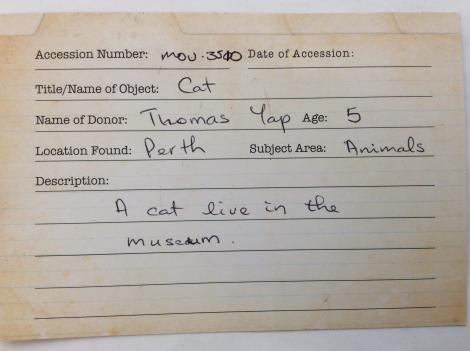 Accession Number: MOU.3540 Date of Accession:
Title/Name of Object: Cat
Name of Donor: Thomas Yap Age: 5
Location Found: Perth Subject Area: Animals
Description:
A cat live in the
museum.